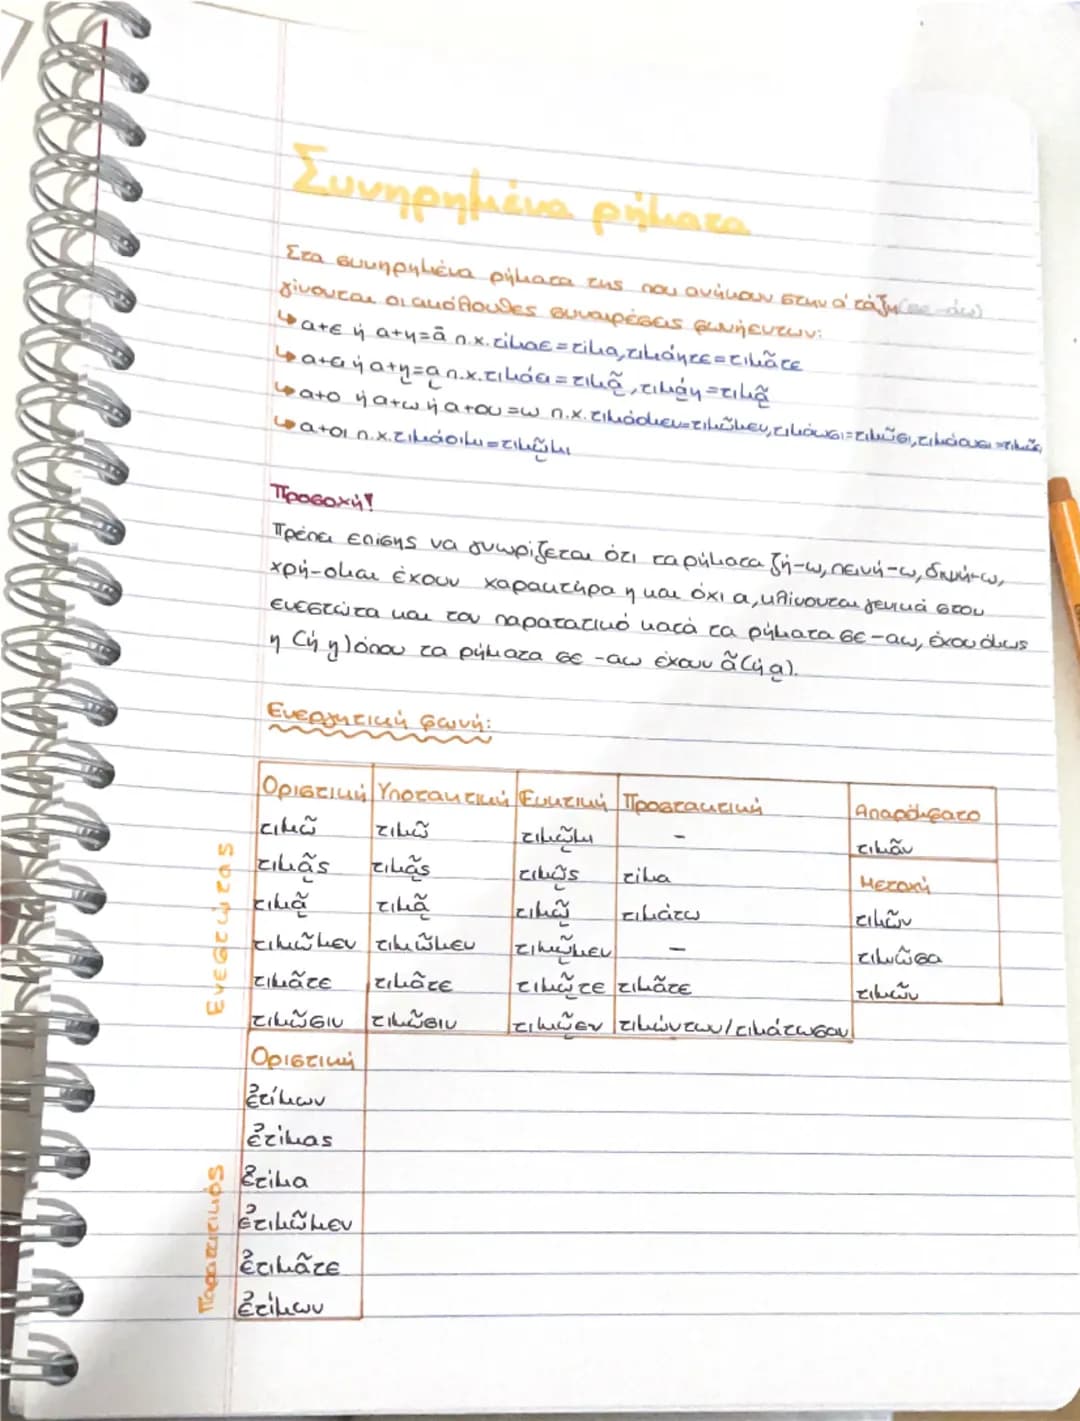 Συνηρημένα ρήματα
Στα συνηρημένα ρήματα της που ανήκουν στην α' τάξη (σε -άω)
γίνονται οι ακόλουθες συναιρέσεις φωνήεντων:
↳ α+ε ή α+η=ᾱ π.χ. τίμαε=τίμα, τιμάητε=τιμᾶτε
↳ α+ει ή α+ῃ=ᾳ π.χ. τιμάει=τιμᾷ, τιμάῃ=τιμᾷ
↳ α+ο ή α+ω ή α+ου=ω π.χ. τιμάομεν=τιμῶμεν, τιμάωσι=τιμῶσι, τιμάουσι=τιμῶσι
↳ α+οι π.χ. τιμάοιμι=τιμῷμι
Προσοχή!
Πρέπει επίσης να γνωρίζεται ότι τα ρήματα ζή-ω, πεινή-ω, διψή-ω,
χρή-ομαι έχουν χαρακτήρα η και όχι α, κλίνονται γενικά στον
ενεστώτα και τον παρατατικό κατά τα ρήματα σε -αω, έχου όμως
η (ή ῃ) όπου τα ρήματα σε -αω έχουν ᾶ (ή ᾳ).
Ενεργητική φωνή:
Οριστική Υποτακτική Ευκτική Προστακτική Απαρέμφατο
τιμῶ τιμῶ τιμῷμι - τιμᾶν
τιμᾷς τιμᾷς τιμῷς τίμα Μετοχή
τιμᾷ τιμᾷ τιμῷ τιμάτω τιμῶν
τιμῶμεν τιμῶμεν τιμῷμεν - τιμῶσα
τιμᾶτε τιμᾶτε τιμῷτε τιμᾶτε τιμῶν
τιμῶσιν τιμῶσιν τιμῷεν τιμώντων/τιμάτωσαν
Ενεστώτας
Οριστική
ἐτίμων
ἐτίμας
ἐτίμα
ἐτιμῶμεν
ἐτιμᾶτε
ἐτίμων
Παρατατικός